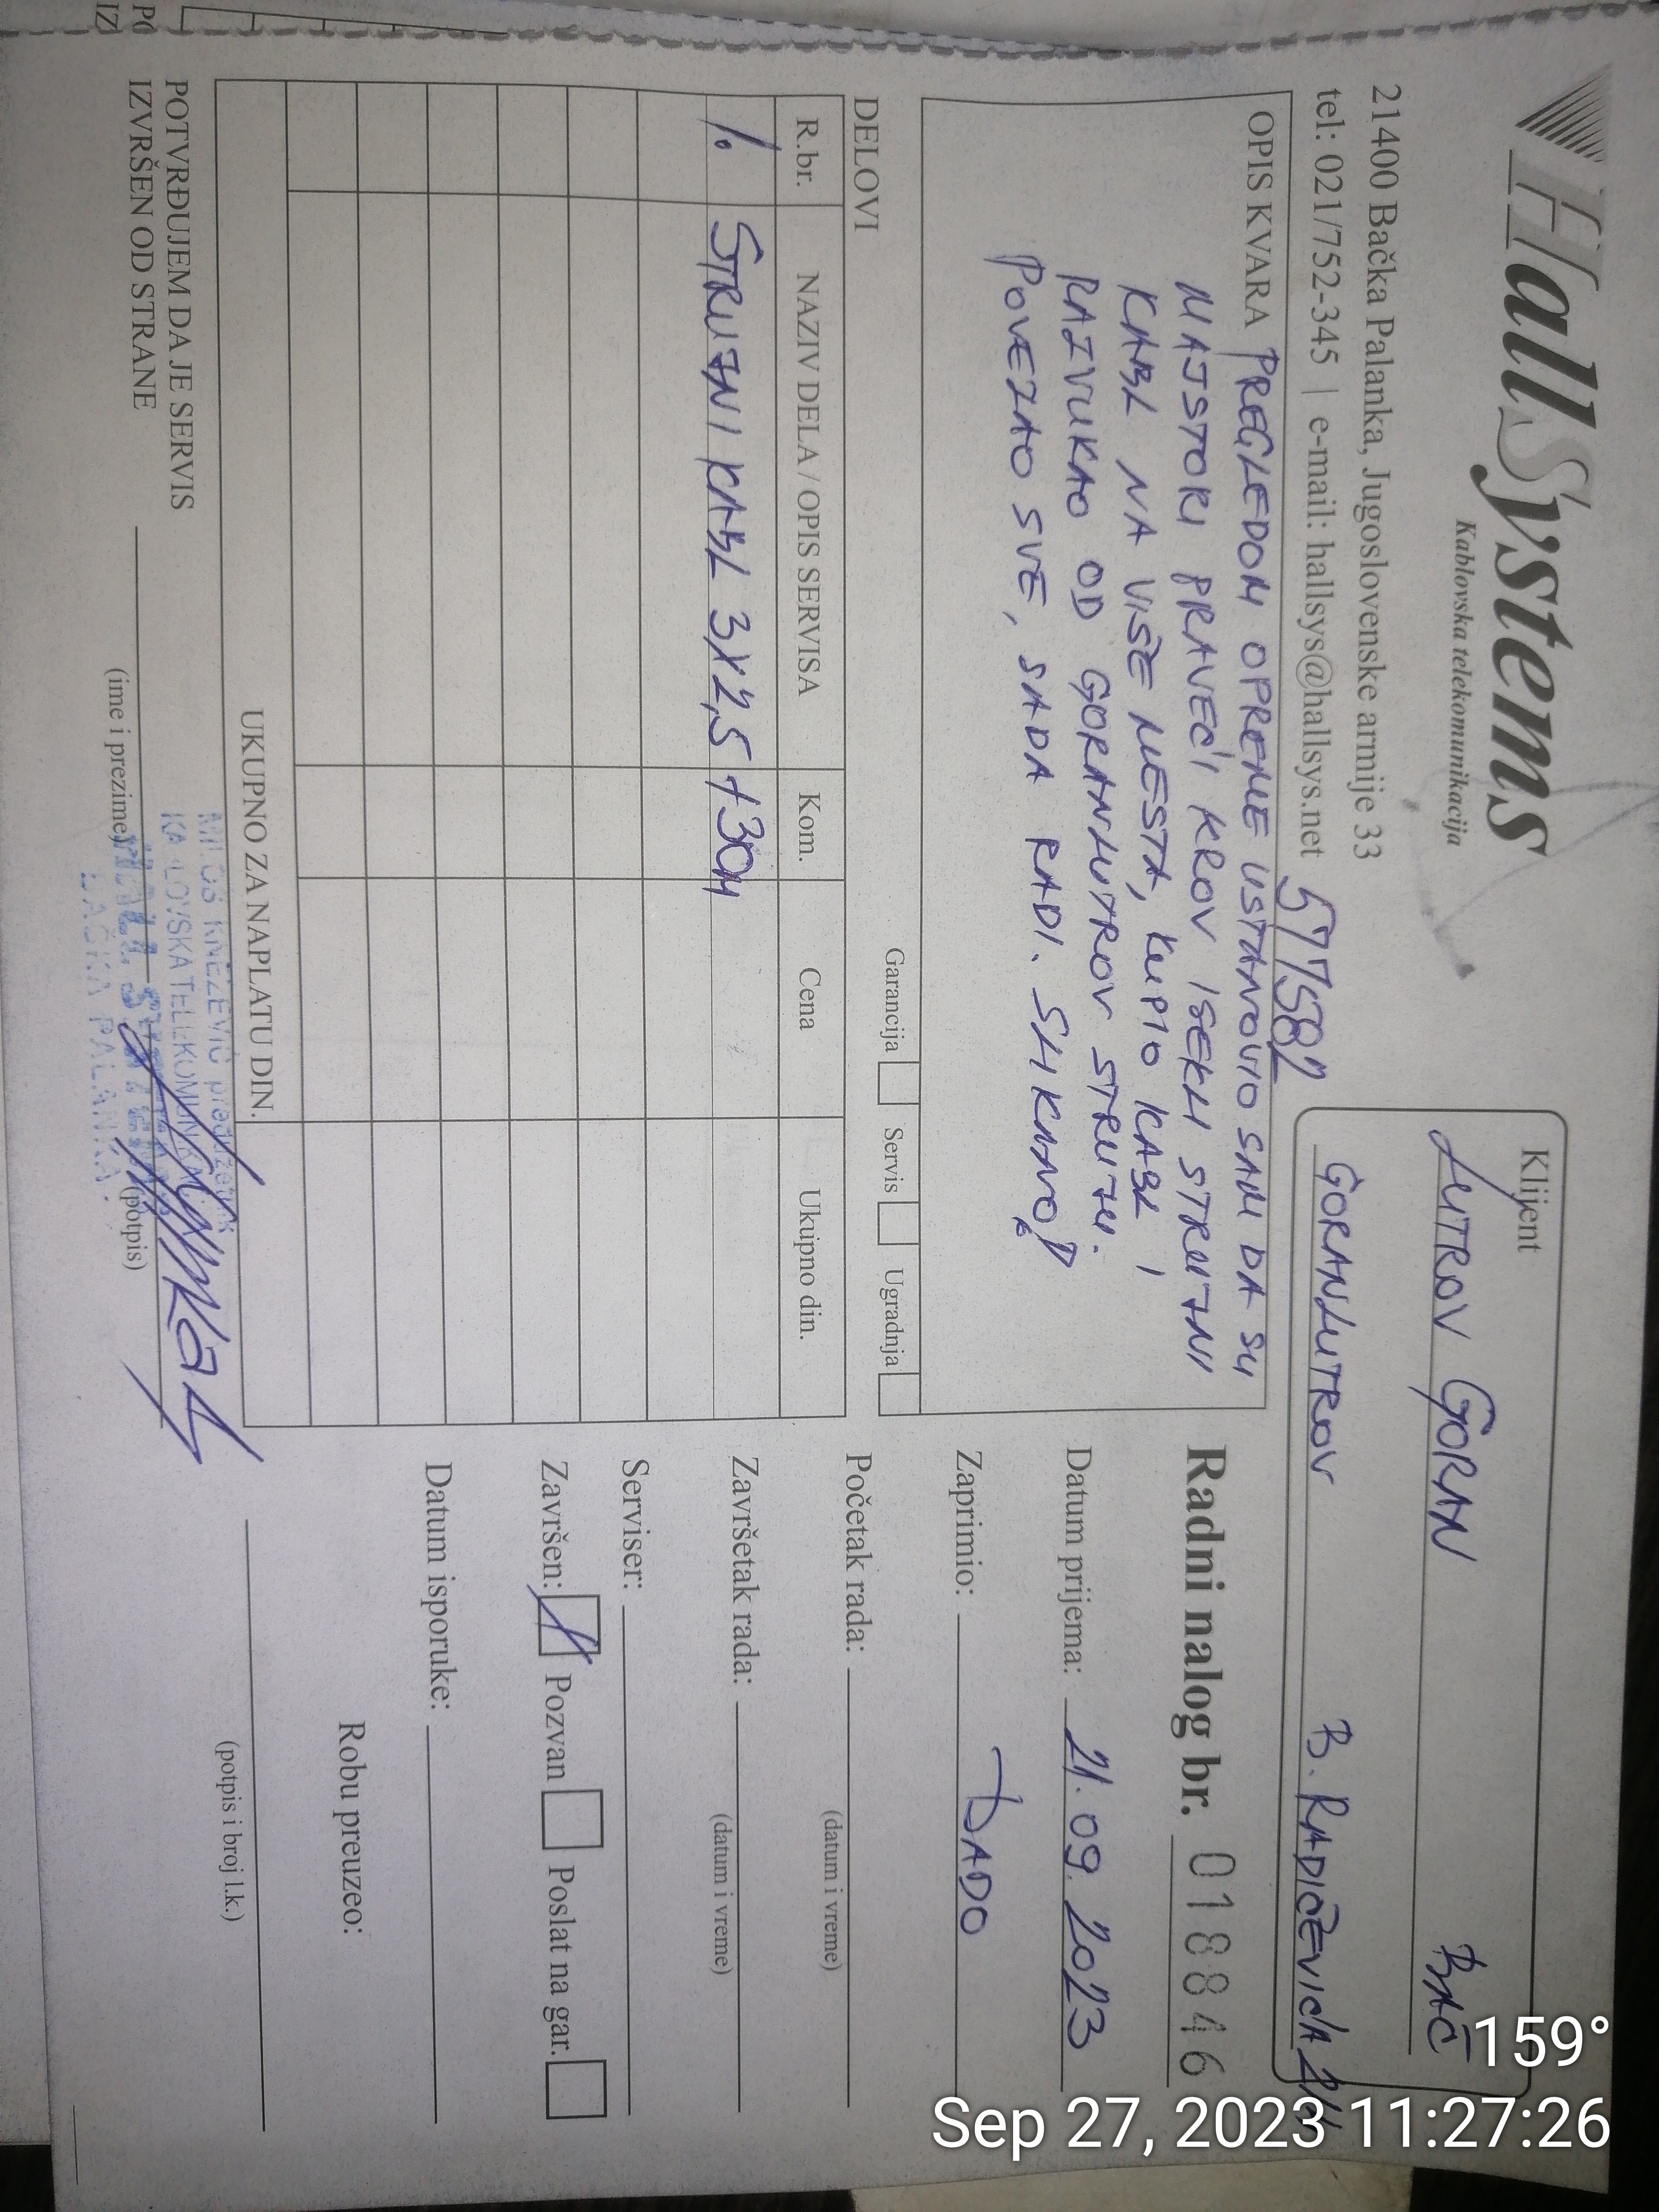 HallSystems
Kablovska telekomunikacija
21400 Bačka Palanka, Jugoslovenske armije 33
tel: 021/752-345 | e-mail: hallsys@hallsys.net
577582
Klijent
LUTROV GORAN BAČ
GORANLUTROV B. RADIČEVIĆA
OPIS KVARA PREGLEDOM OPREME USTANOVIO SAM DA SU
MAJSTORI PRAVEĆI KROV ISEKLI STRUJNI
KABL NA VIŠE MESTA, KUPIO KABL I
RAZVUKAO OD GORANLUTROV STRUJU.
POVEZAO SVE, SADA RADI. SLIKANO!
Garancija Servis Ugradnja
DELOVI
R.br. NAZIV DELA / OPIS SERVISA Kom. Cena Ukupno din.
1. STRUJNI KABL 3X2,5 +30M
UKUPNO ZA NAPLATU DIN.
POTVRĐUJEM DA JE SERVIS
IZVRŠEN OD STRANE
(ime i prezime) (potpis)
MILOŠ KNEŽEVIĆ preduzetnik
KABLOVSKA TELEKOMUNIKAC
HALL SYSTEMS
BAČKA PALANKA
Radni nalog br. 018846
Datum prijema: 21.09.2023
Zaprimio: DADO
Početak rada:
(datum i vreme)
Završetak rada:
(datum i vreme)
Serviser:
Završen: Pozvan Poslat na gar.
Datum isporuke:
Robu preuzeo:
(potpis i broj l.k.)
PO
IZ
159°
Sep 27, 2023 11:27:26